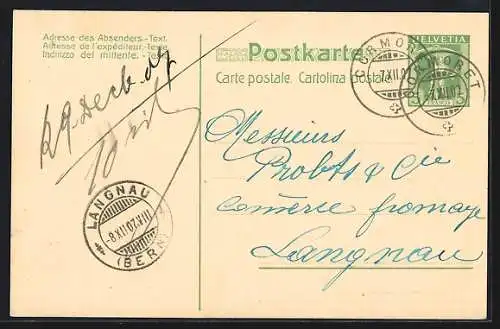 Adresse des Absenders.-Text.
Adresse de l'expéditeur.-Texte.
Indirizzo del mittente.-Testo.
Postkarte
Carte postale. Cartolina postale.
HELVETIA
CORMORET
7.XII.07
CORMORET
7.XII.07
29. Decb. 07
LANGNAU
-8.XII.07.XIII
(BERN)
Messieurs
Probst & Cie
Commerce fromage
Langnau